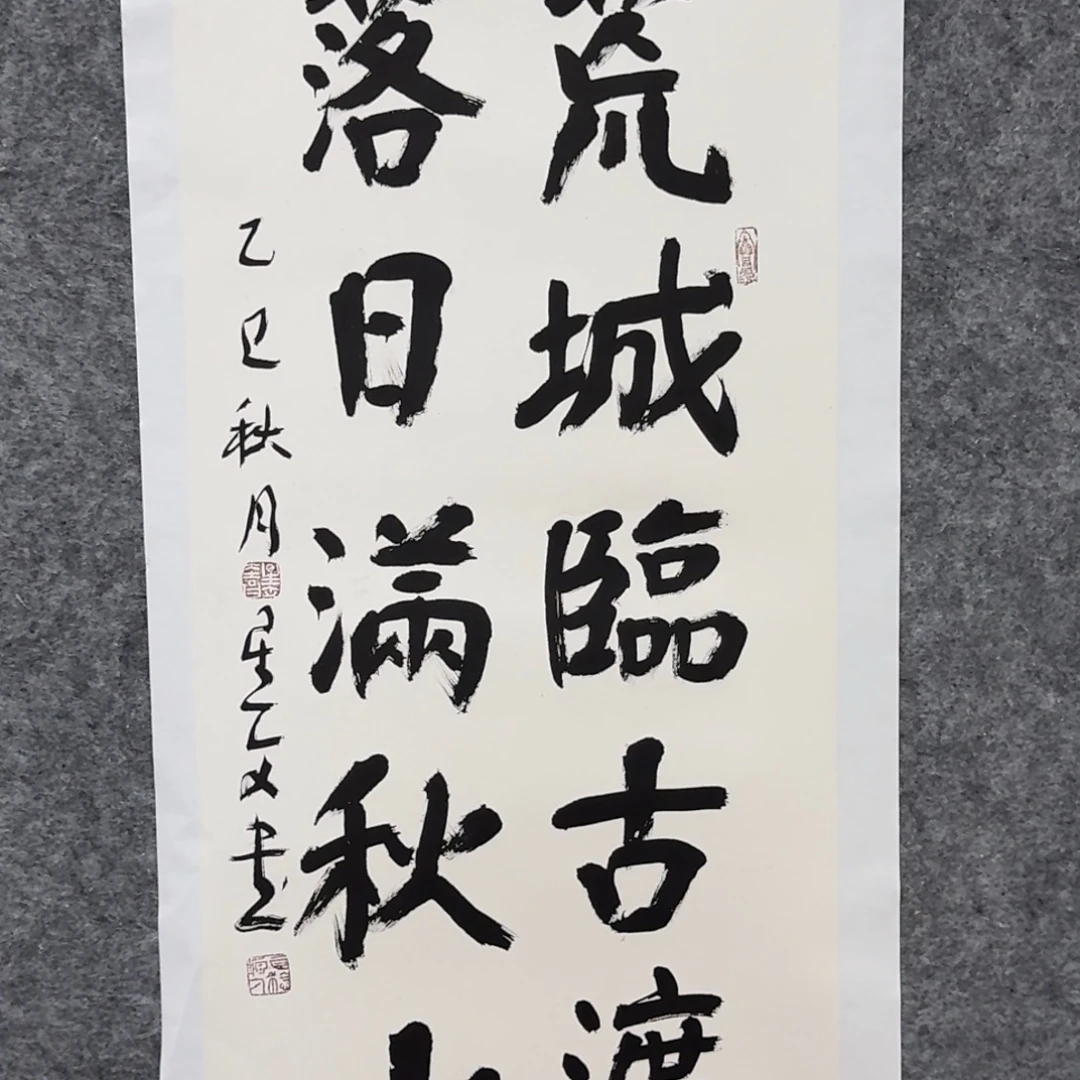 荒城臨古渡
落日滿秋山
乙巳秋月